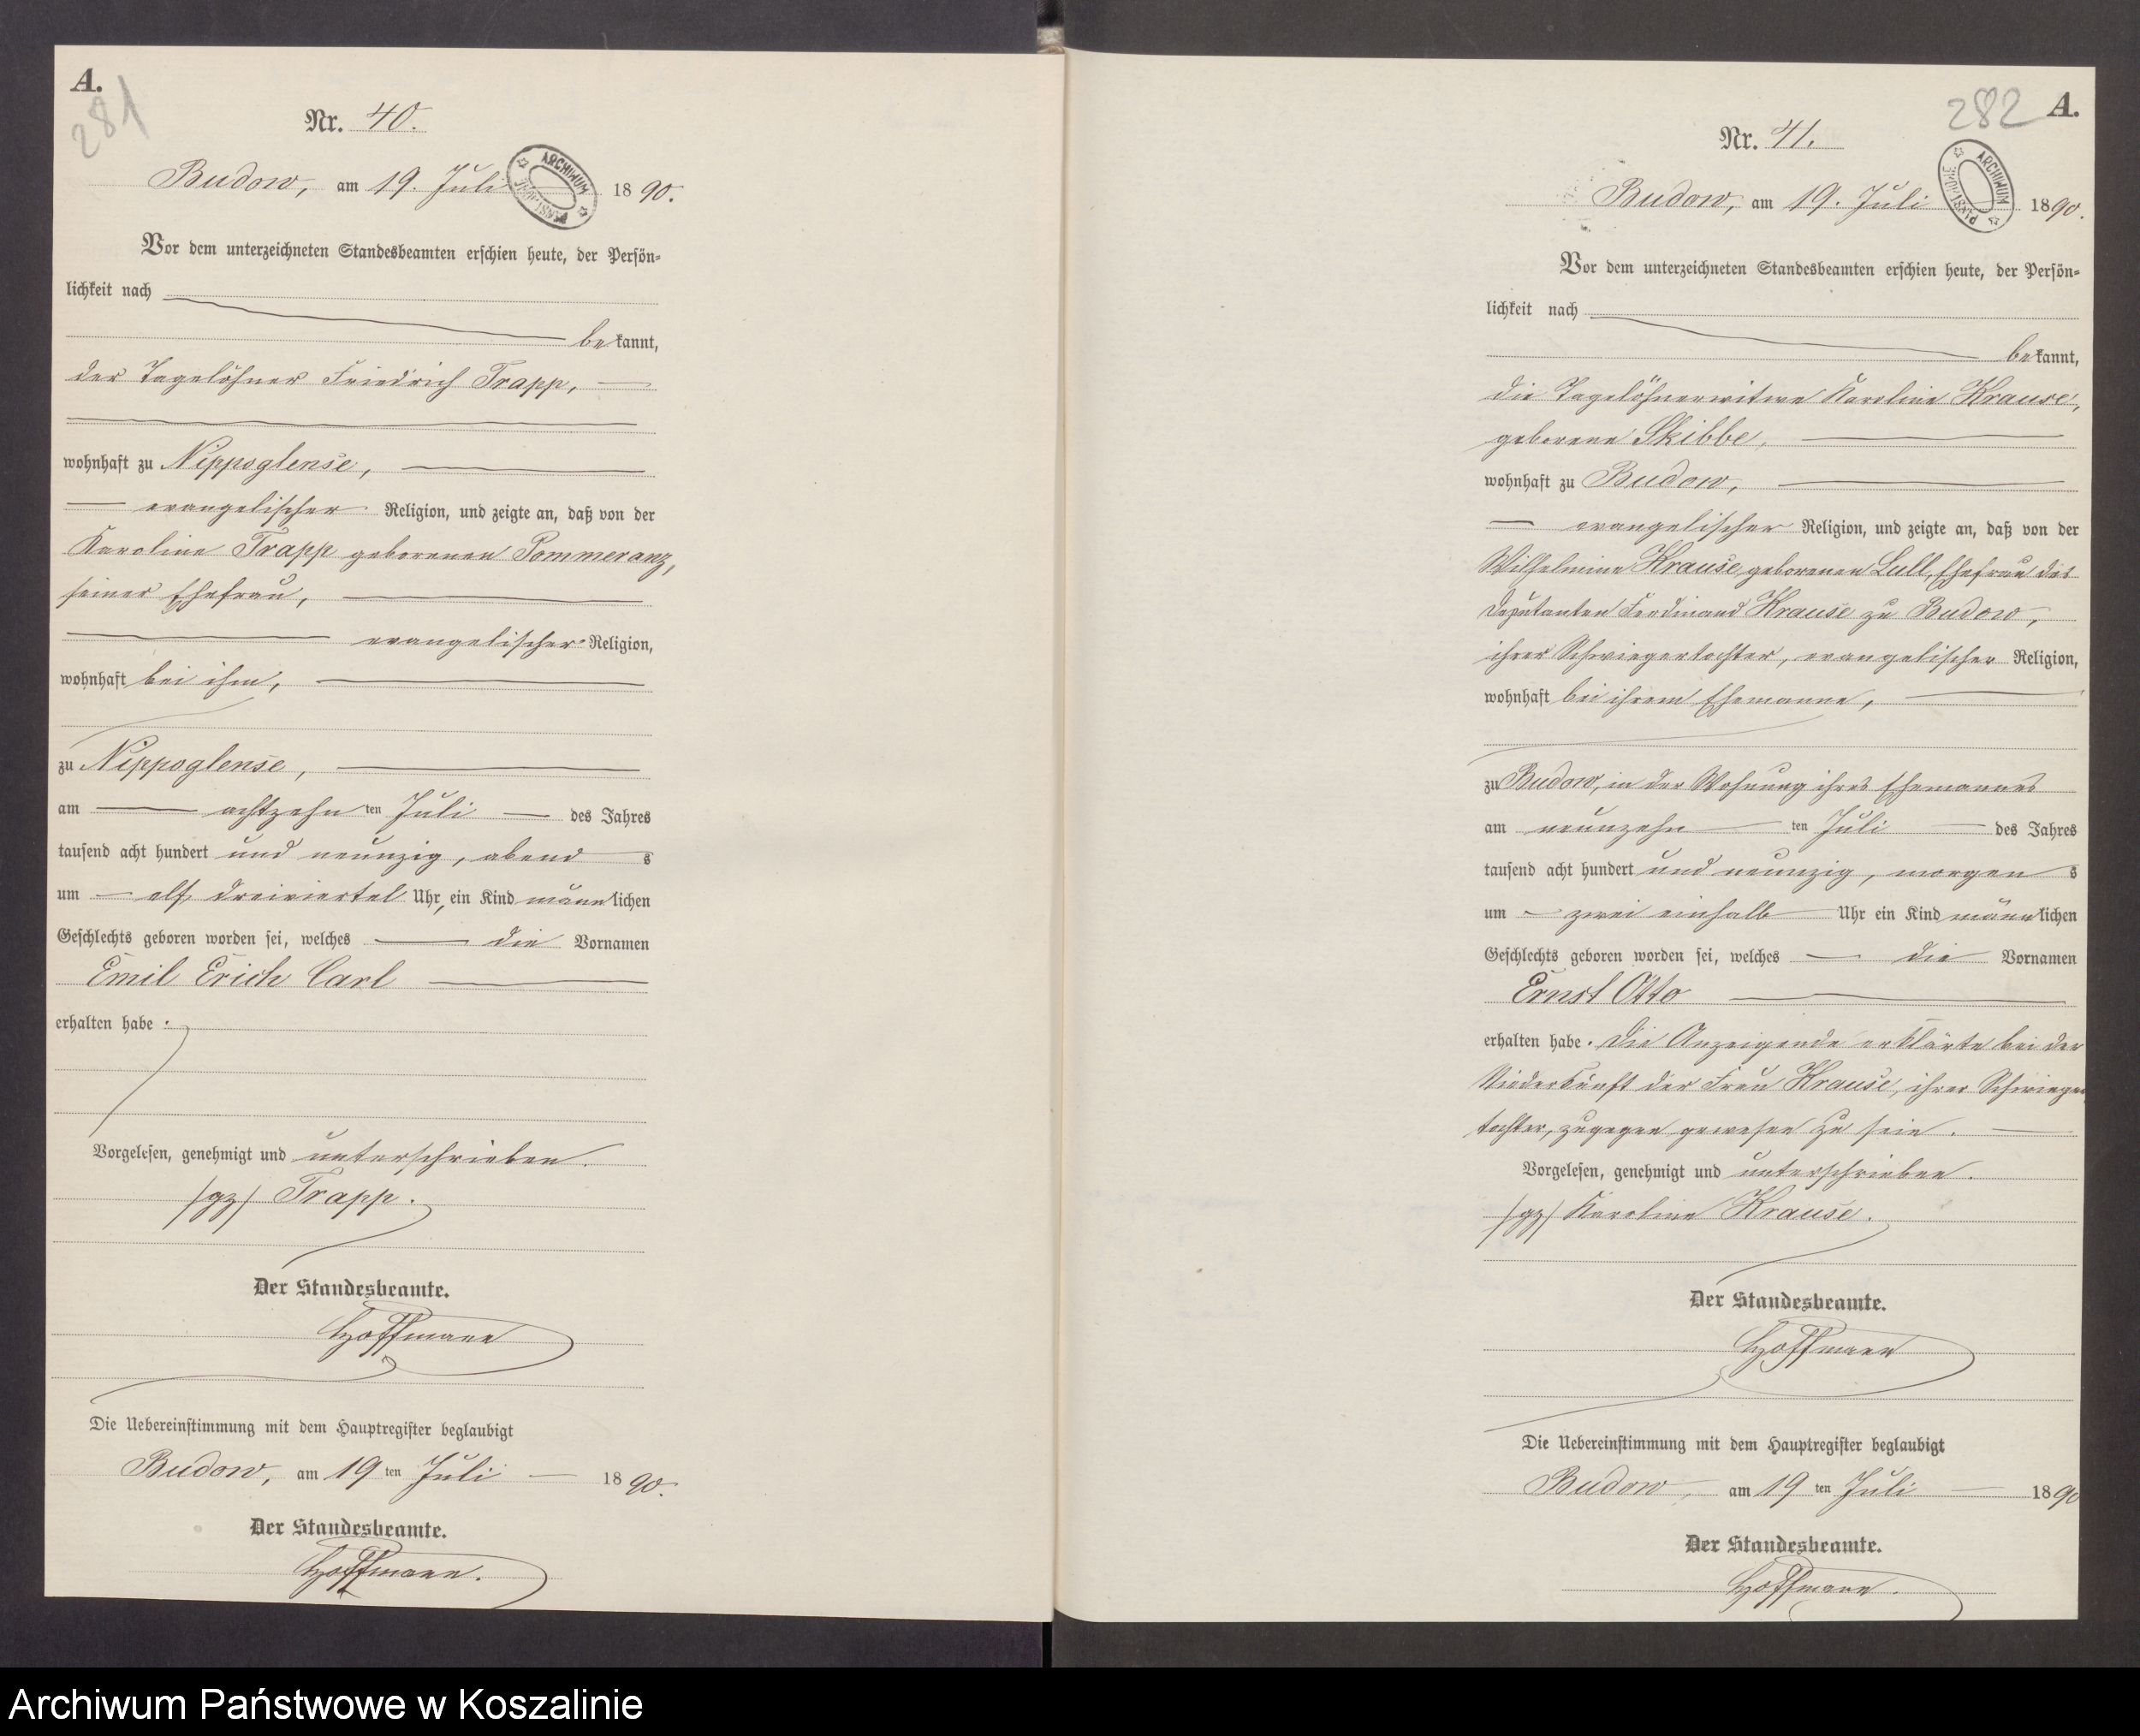 A.
281
Nr. 40.
Budow, am 19. Juli 1890.
ARCHIWUM PAŃSTWOWE
Vor dem unterzeichneten Standesbeamten erschien heute, der Persön-
lichkeit nach
bekannt,
der Tagelöhner Friedrich Trapp,
wohnhaft zu Nippoglense,
evangelischer Religion, und zeigte an, daß von der
Karoline Trapp geborenen Pommeranz,
seiner Ehefrau,
evangelischer Religion,
wohnhaft bei ihm,
zu Nippoglense,
am achtzehnten Juli des Jahres
tausend acht hundert und neunzig, abends
um elf dreiviertel Uhr, ein Kind männlichen
Geschlechts geboren worden sei, welches die Vornamen
Emil Erich Carl
erhalten habe.
Vorgelesen, genehmigt und unterschrieben.
/gz/ Trapp.
Der Standesbeamte.
Hoffmann
Die Uebereinstimmung mit dem Hauptregister beglaubigt
Budow, am 19ten Juli 1890.
Der Standesbeamte.
Hoffmann.
282 A.
Nr. 41.
Budow, am 19. Juli 1890.
ARCHIWUM PAŃSTWOWE
Vor dem unterzeichneten Standesbeamten erschien heute, der Persön-
lichkeit nach
bekannt,
die Tagelöhnerwitwe Karoline Krause,
geborene Skibbe,
wohnhaft zu Budow,
evangelischer Religion, und zeigte an, daß von der
Wilhelmine Krause geborenen Lull, Ehefrau des
Deputanten Ferdinand Krause zu Budow,
ihrer Schwiegertochter, evangelischer Religion,
wohnhaft bei ihrem Ehemanne,
zu Budow, in der Wohnung ihres Ehemannes
am neunzehnten Juli des Jahres
tausend acht hundert und neunzig, morgens
um zwei einhalb Uhr ein Kind männlichen
Geschlechts geboren worden sei, welches die Vornamen
Ernst Otto
erhalten habe. Die Anzeigende erklärte bei der
Niederkunft der Frau Krause, ihrer Schwieger
tochter, zugegen gewesen zu sein.
Vorgelesen, genehmigt und unterschrieben.
/gz/ Karoline Krause.
Der Standesbeamte.
Hoffmann
Die Uebereinstimmung mit dem Hauptregister beglaubigt
Budow, am 19ten Juli 1890
Der Standesbeamte.
Hoffmann.
Archiwum Państwowe w Koszalinie